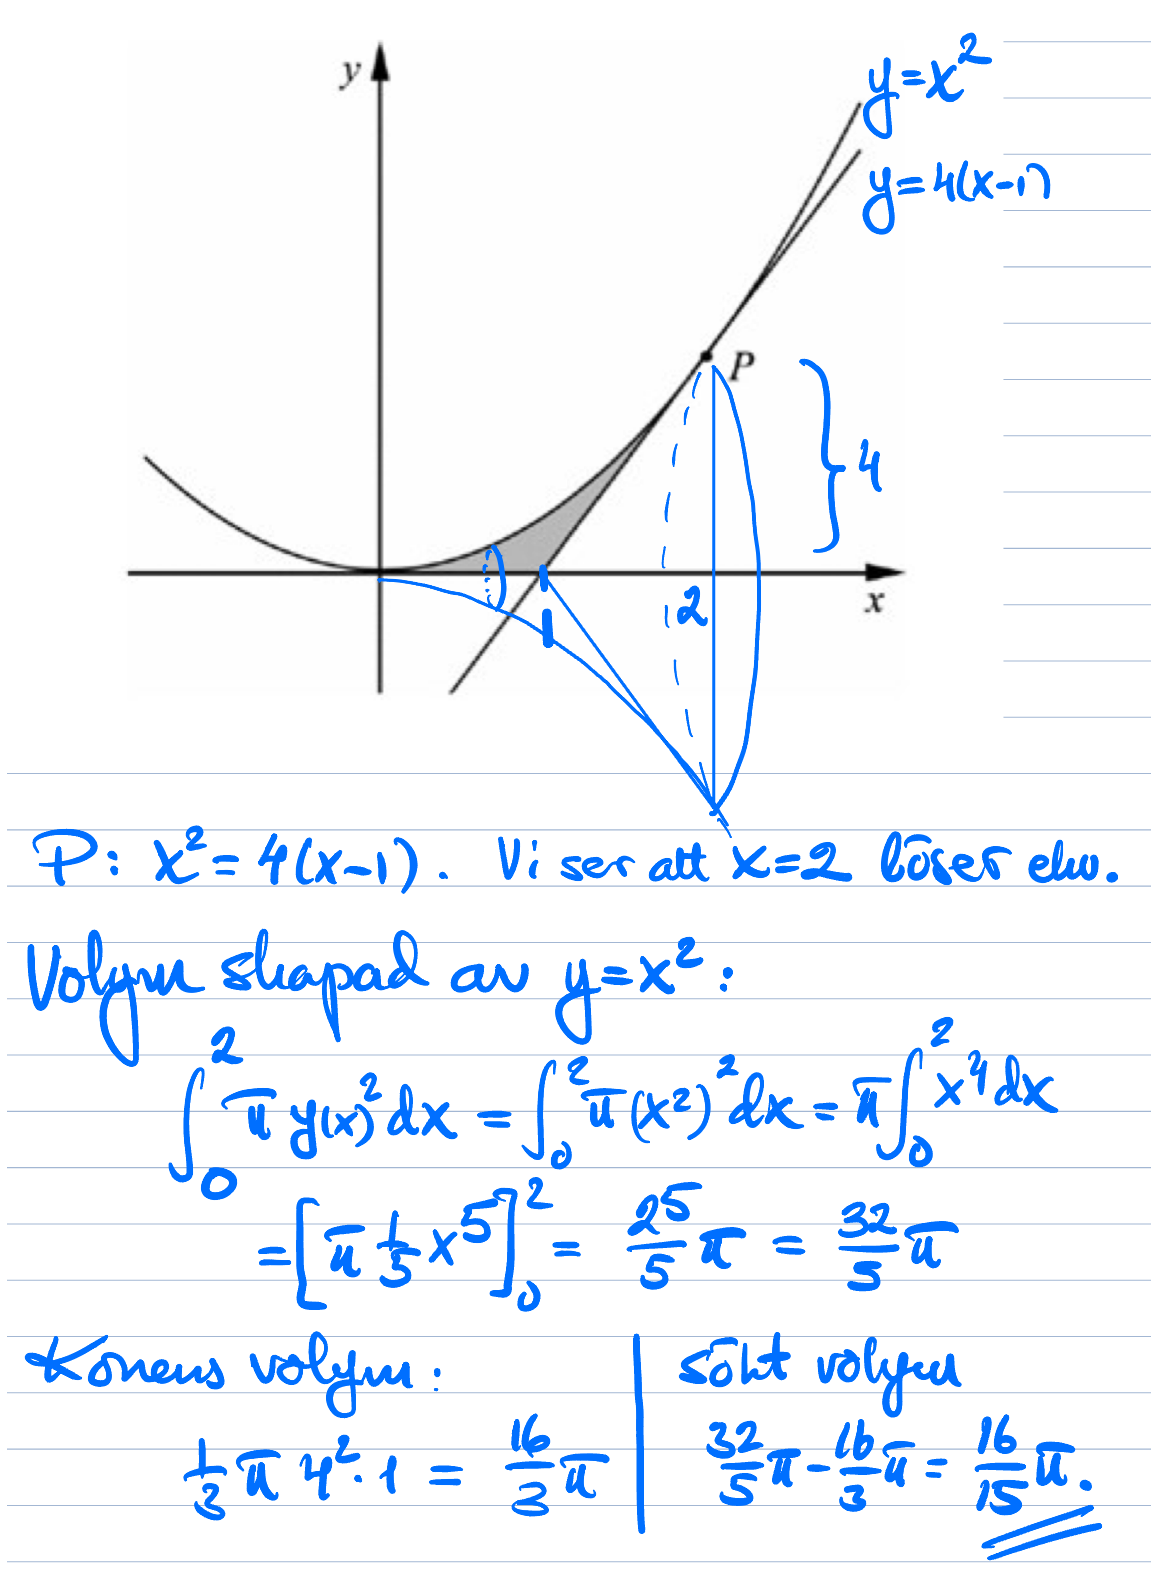 y
y=x²
y=4(x-1)
P
4
x
2
1
P: x² = 4(x-1). Vi ser att x=2 löser ekv.
Volym skapad av y=x²:
∫₀² π y(x)² dx = ∫₀² π (x²)² dx = π ∫₀² x⁴ dx
= [π 1/5 x⁵]₀² = 2⁵/5 π = 32/5 π
Konens volym:
1/3 π 4²·1 = 16/3 π
sökt volym
32/5 π - 16/3 π = 16/15 π.